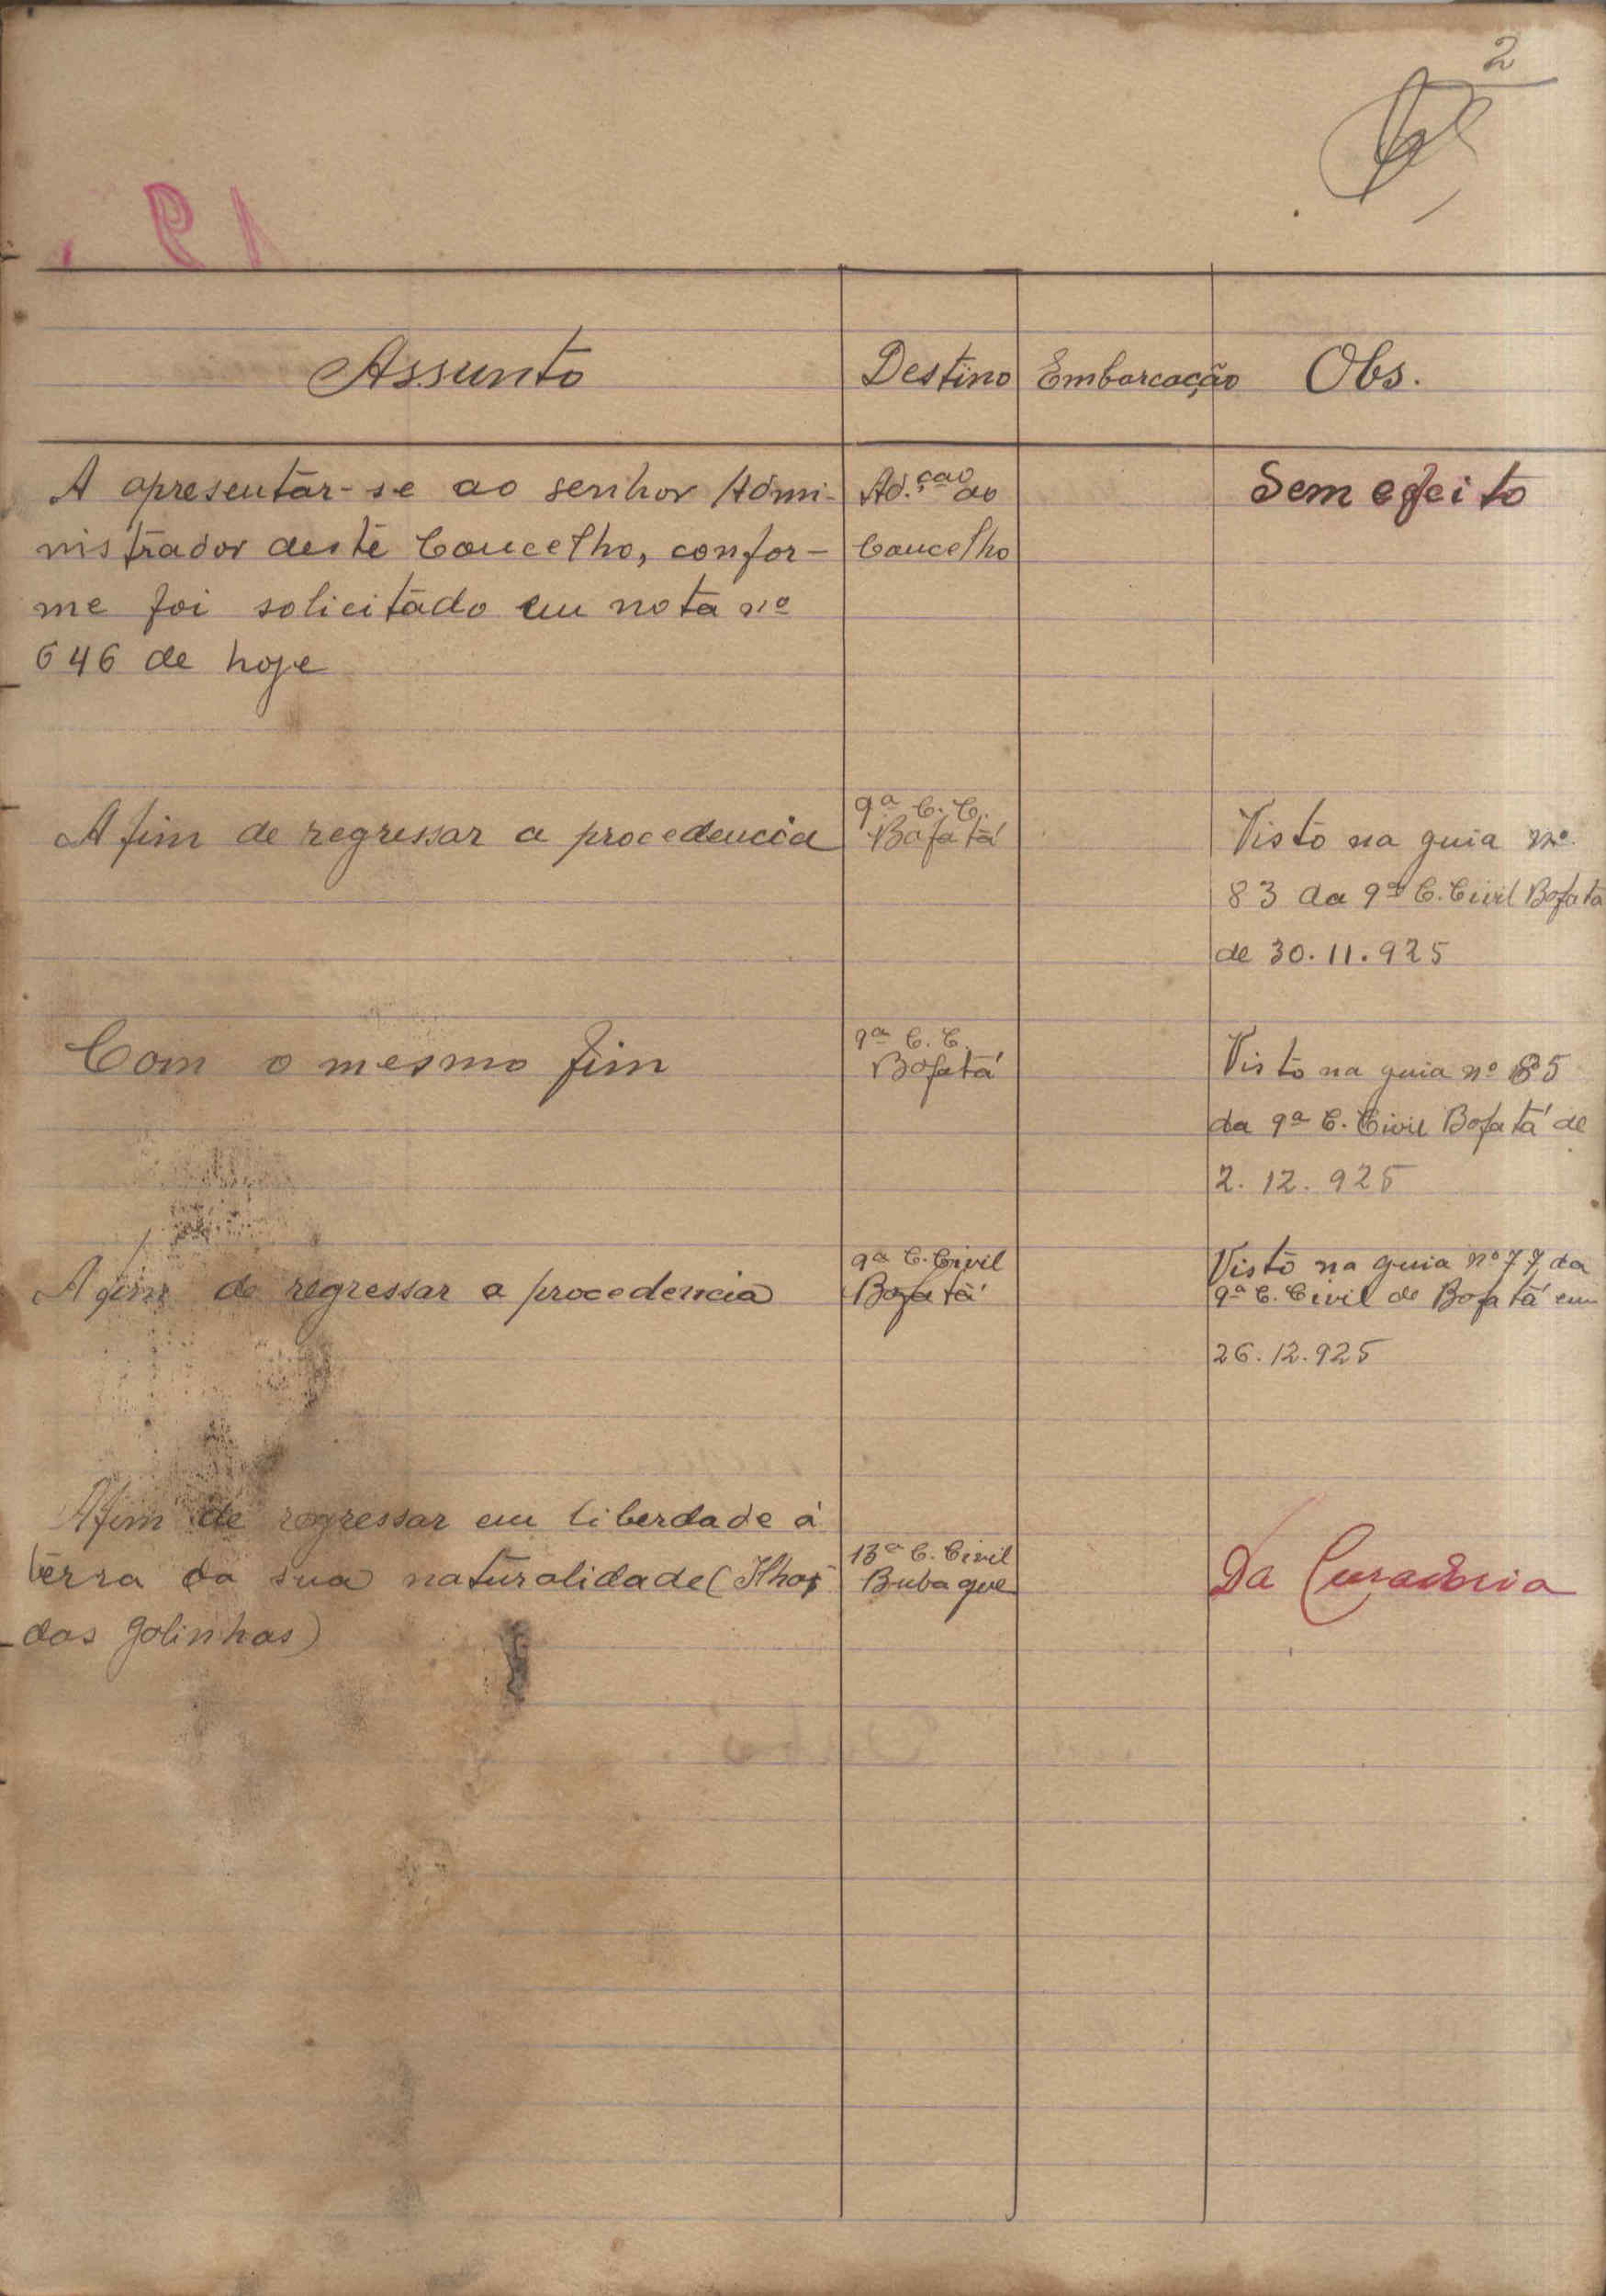 2
91
Assunto Destino Embarcação Obs.
A apresentar-se ao senhor Admi-
nistrador deste Concelho, confor-
me foi solicitado em nota nº
646 de hoje
Ad.ção do
Concelho
Sem efeito
Afim de regressar a procedencia
9ª C. C.
Bafatá
Visto na guia nº
83 da 9ª C. Civil Bafatá
de 30.11.925
Com o mesmo fim
9ª C. C.
Bafatá
Visto na guia nº 85
da 9ª C. Civil Bafatá de
2.12.925
Afim de regressar a procedencia
9ª C. Civil
Bafatá
Visto na guia nº 77 da
9ª C. Civil de Bafatá em
26.12.925
Afim de regressar em liberdade á
terra da sua naturalidade (Ilhas
das galinhas)
13ª C. Civil
Bubaque
Da Curadoria